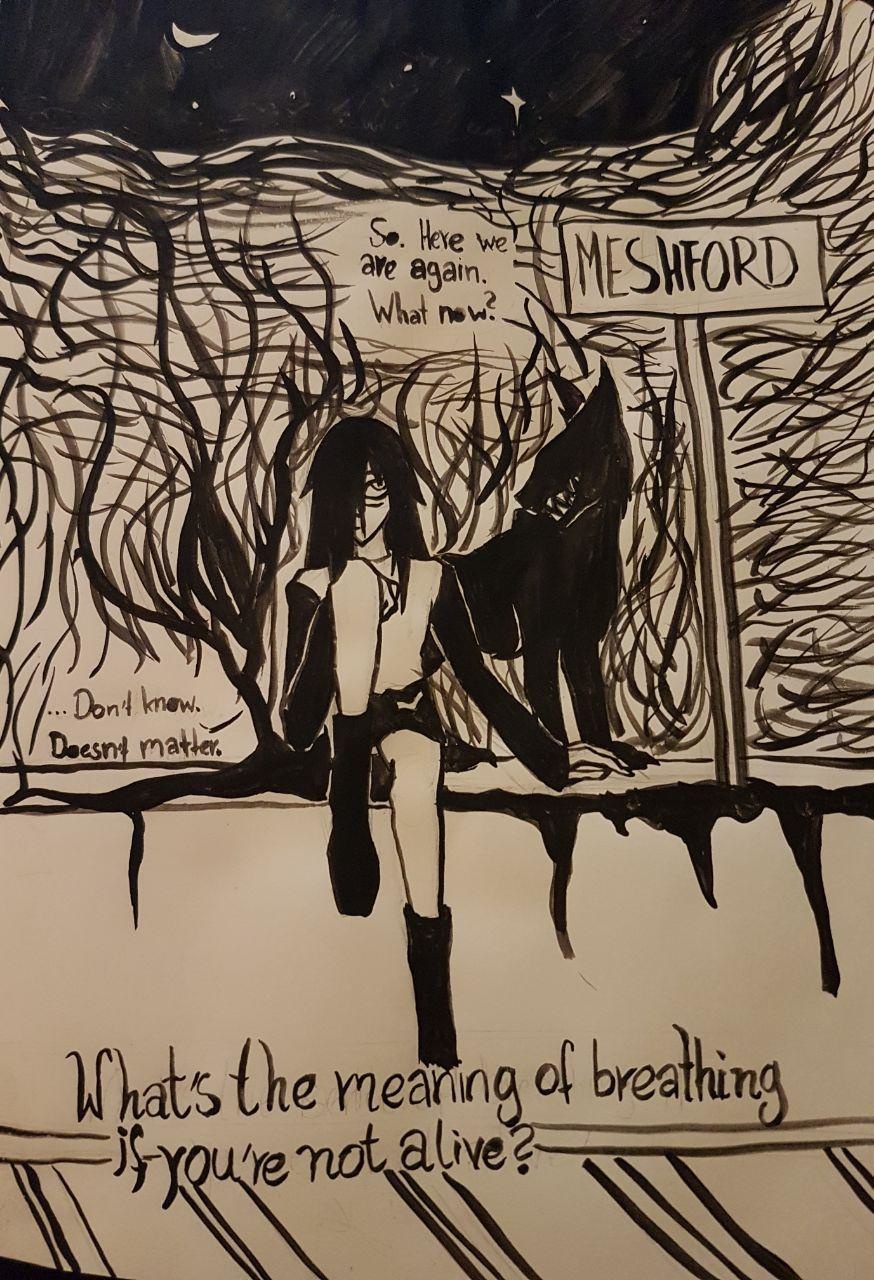 So. Here we
are again.
What now?
MESHFORD
...Don't know.
Doesn't matter.
What's the meaning of breathing
if you're not alive?